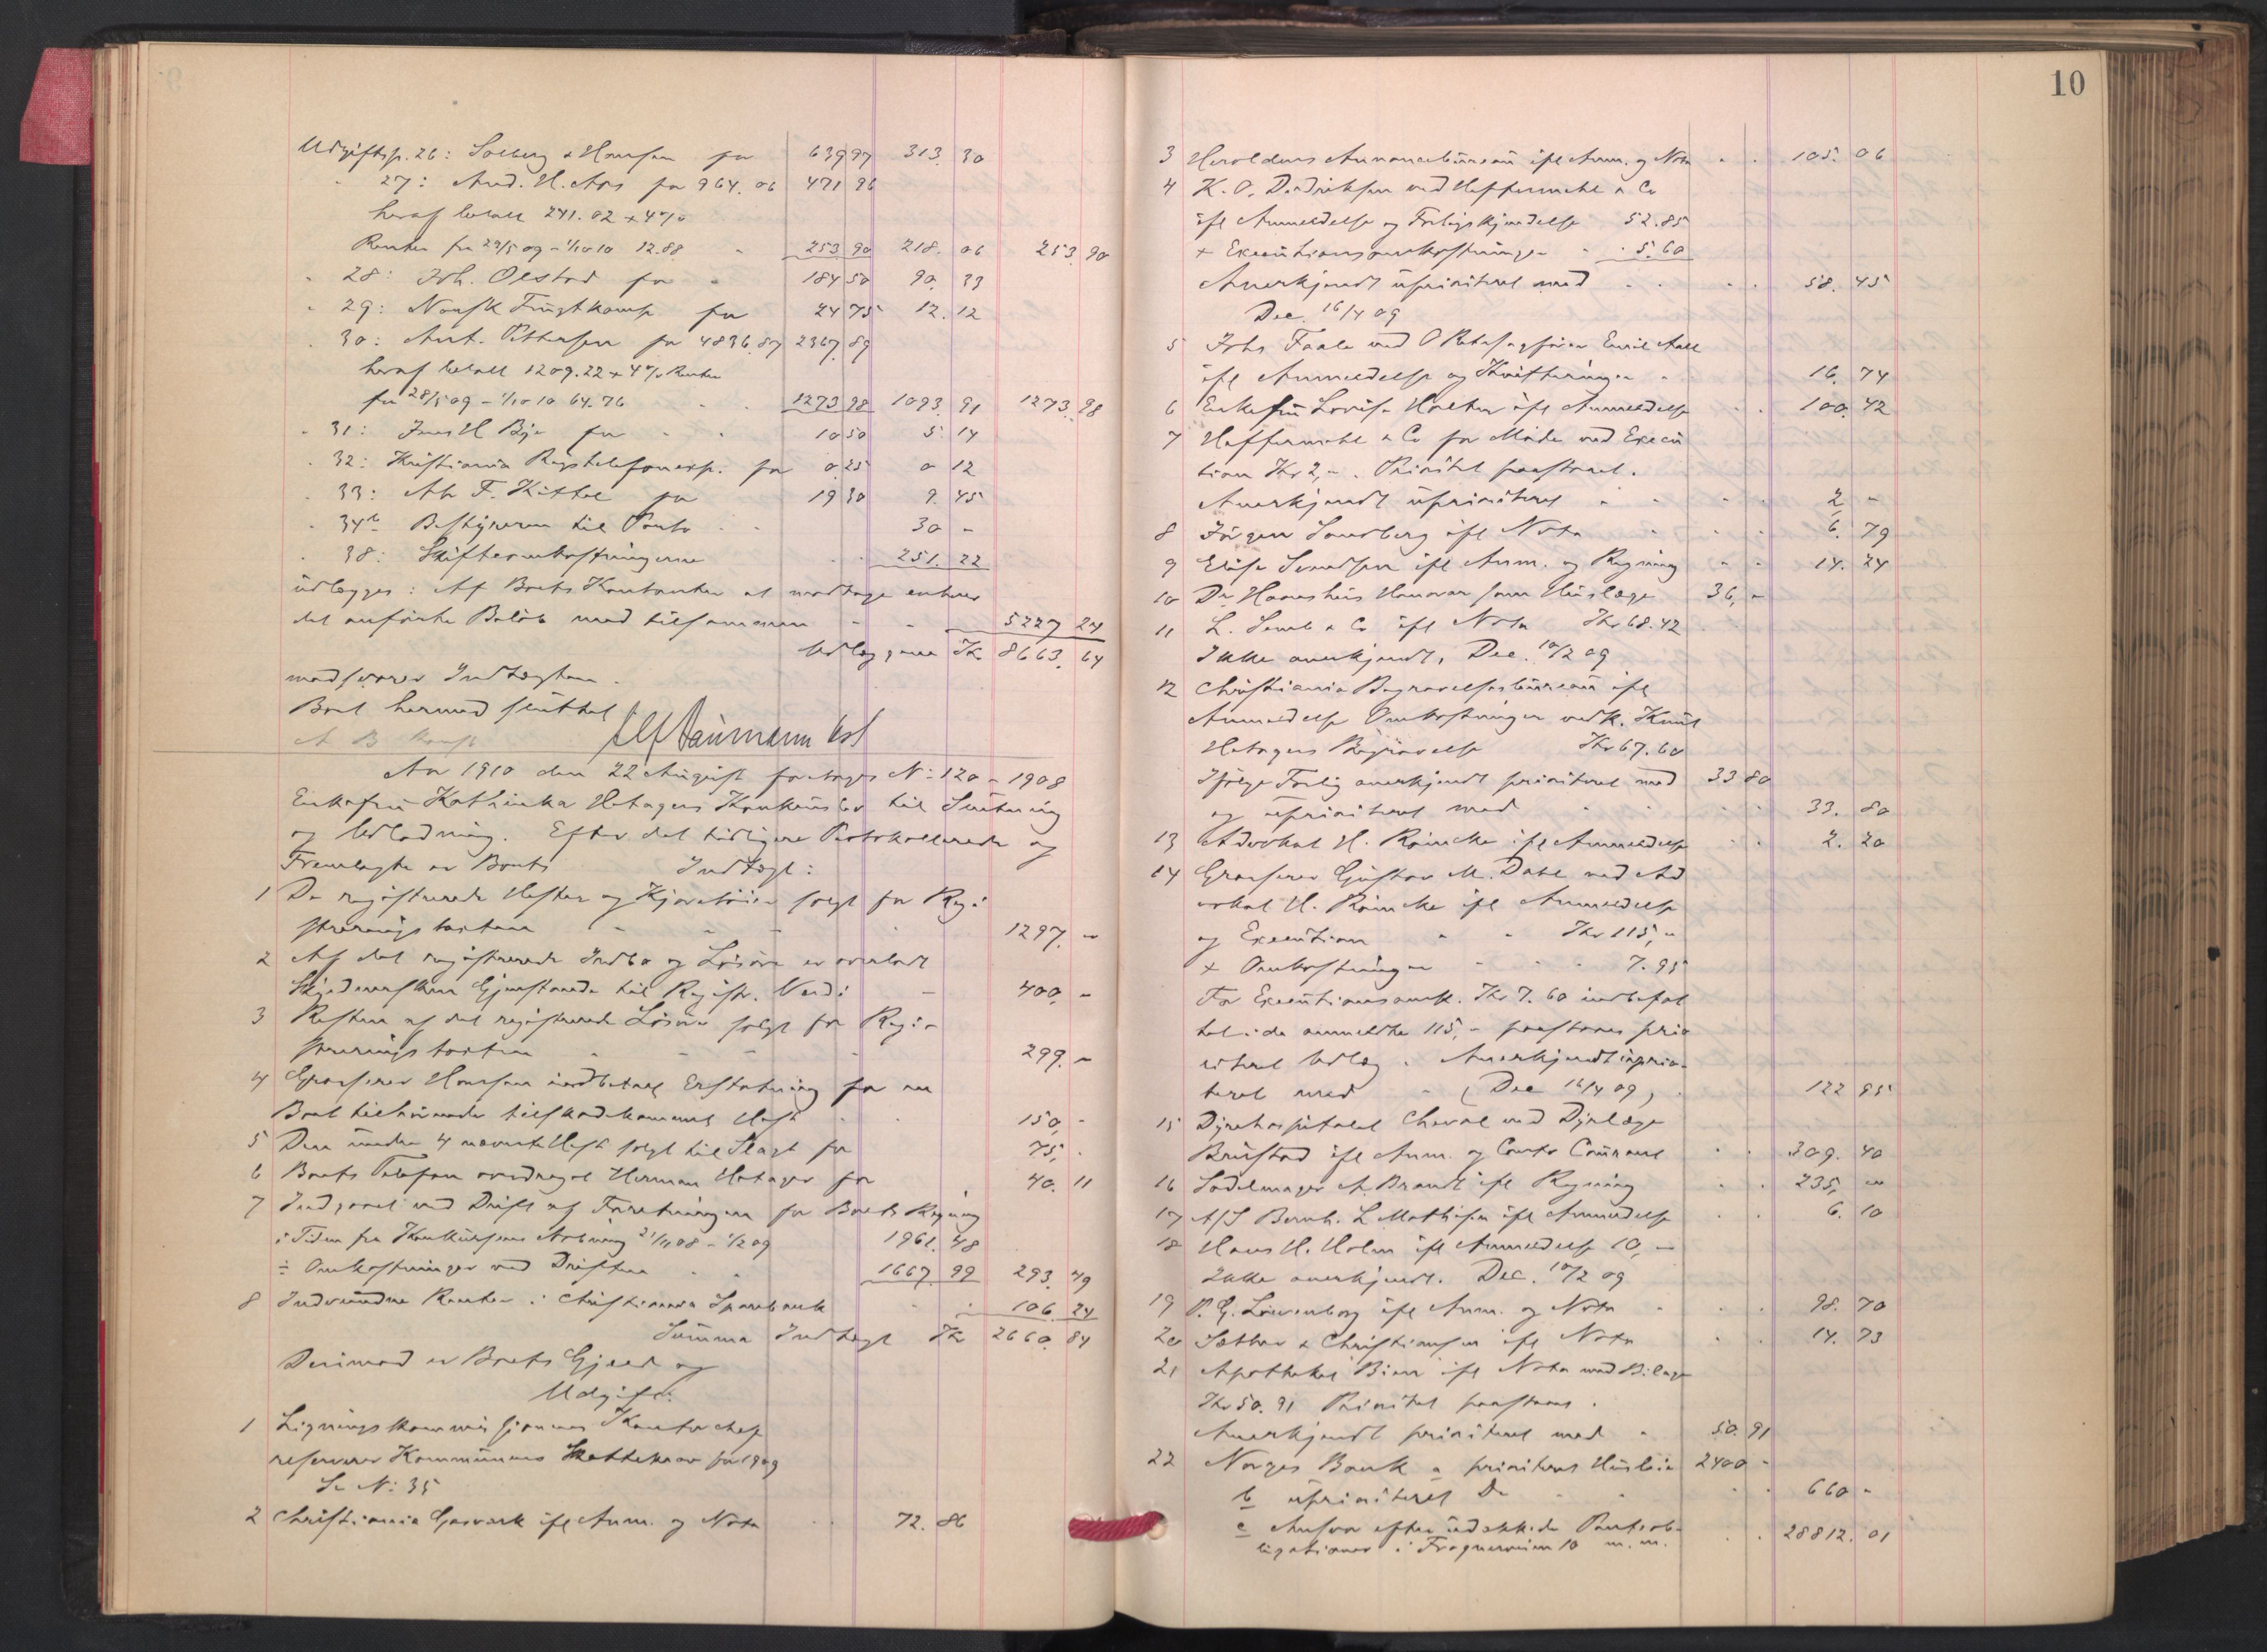 Udgiftsp. 26: Solberg & Hansen for 639 97 313. 30
" 27: And. H. Aas for 964. 06 471 96
heraf betalt 241. 02 + 4%
Renter fra 29/5 09 - 1/10 10 12.88 " 253 90 218. 06 253. 90
" 28: Joh. Olstad for " 184 50 90. 33
" 29: Norsk Frugtkomp for 24 75 12. 12
" 30: Ant. Pettersen for 4836.87 2367. 89
heraf betalt 1209.22 + 4% Renter
fra 28/5 09 - 1/10 10 64.76 1273 98 1093. 91 1273. 98
" 31: Jens H Bje for 10 50 5. 14
" 32: Kristiania Rigstelefonexp. for 0. 25 0 12
" 33: F. Kittel for 19 30 9. 45
" 34b Bestyreren til Porto 30 -
" 38: Skifteomkostningerne 251. 22
udlægges: Af Boets Kontanter at modtage enhver
det anførte Beløb med tilsammen 5227 24
Udlæggene Kr 8663. 64
modsvarer Indtægten.
Boet hermed sluttet
Alf Naumann
Aar 1910 den 22 August foretoges No 120 - 1908
Enkefru Kathinka Hotagens Konkursbo til Slutning
og Udlodning. Efter det tidligere Protokollerede og
Fremlagte er Boets Indtægt:
1 De registrerede Hester og Kjøretøier solgt for Regi-
streringstaxten 1297. -
2 Af det registrerede Indbo og Løsøre er overladt
Skjødnerskens Gjenstande til Registr. Værdi 400, -
3 Resten af det registrerede Løsøre solgt for Regi-
streringstaxten 299. -
4 Grosserer Hansen indbetalt Erstatning for en
Boet tilhørende tilskadekommet Hest 150, -
5 Den under 4 nævnte Hest solgt til Slagt for 75, -
6 Boets Telefon overdraget Herman Hotager for 40. 11
7 Indgaaet ved Drift af Forretningen for Boets Regning
i Tiden fra Konkursens Aabning 21/11 08 - 1/2 09 1961. 48
÷ Omkostninger ved Driften 1667. 99 293. 49
8 Indvundne Renter i Christiania Sparebank 106. 24
Summa Indtægt Kr 2660. 84
Derimod er Boets Gjæld og
Udgift:
1 Ligningskommissionens Kontorchef
reserverer Kommunens Skattekrav for 1909
Se No: 35
2 Christiania Gasværk ifl Anm. og Nota 72. 86
10
3 Heroldens Annoncebureau ifl Anm. og Nota 105. 06
4 K. O. Didriksen ved Heffermehl & Co
ifl Anmeldelse og Forligskjendelse 52.85
+ Executionsomkostninger 5.60
Anerkjendt uprioriteret med 58. 45
Dec. 16/4 09
5 Johs Faale ved O Retssagfører Emil Aall
ifl Anmeldelse og Kvitteringer 16. 74
6 Enkefru Lovise Holter ifl Anmeldelse 100. 42
7 Heffermehl & Co for Møde ved Execu
tion Kr 2,-. Prioritet paastaaet.
Anerkjendt uprioriteret 2, -
8 Jørgen Sandberg ifl Nota 6. 79
9 Elise Svendsen ifl Anm. og Regning 14. 24
10 Dr. Haaeshus Honorar som Huslæge 36, -
11 L. Semb & Co ifl Nota Kr 68. 42
Ikke anerkjendt, Dec. 10/2 09
12 Christiania Begravelsesbureau ifl
Anmeldelse Omkostninger vedk. Knut
Hotagens Begravelse Kr 67.60
Ifølge Forlig anerkjendt prioriteret med 33 80
og uprioriteret med 33. 80
13 Advokat H. Reincke ifl Anmeldelse 2. 20
14 Grosserer Gustav M. Dahl ved Ad
vokat H. Reincke ifl Anmeldelse
og Execution Kr 115, -
+ Omkostninger 7. 95
For Executionsomk. Kr 7. 60 indbefat
tet i de anmeldte 115, - paastaaes prio
riteret Udlæg. Anerkjendt uprio-
riteret med (Dec 16/4 09) 122 95
15 Dyrehospitalet Cheval ved Dyrlæge
Brustad ifl Anm. og Conto Courant 309. 40
16 Sadelmager A. Brandt ifl Regning 235, -
17 A/S Bernh. L Mathisen ifl Anmeldelse 6. 10
18 Hans H. Holm ifl Anmeldelse 10, -
Ikke anerkjendt. Dec. 10/2 09
19 P. G. Løwenborg ifl Anm. og Nota 98. 70
20 Sæther & Christiansen ifl Nota 14. 73
21 Apotheket Bien ifl Nota med Bilage
Kr 50. 91 Prioritet paastaaes.
Anerkjendt prioriteret med 50. 91
22 Norges Bank a prioriteret Husleie 2400 -
b uprioriteret Do 660 -
c Ansvar efter udstedte Panteob-
ligationer i Frognerveien 10 m. m. 28812. 01